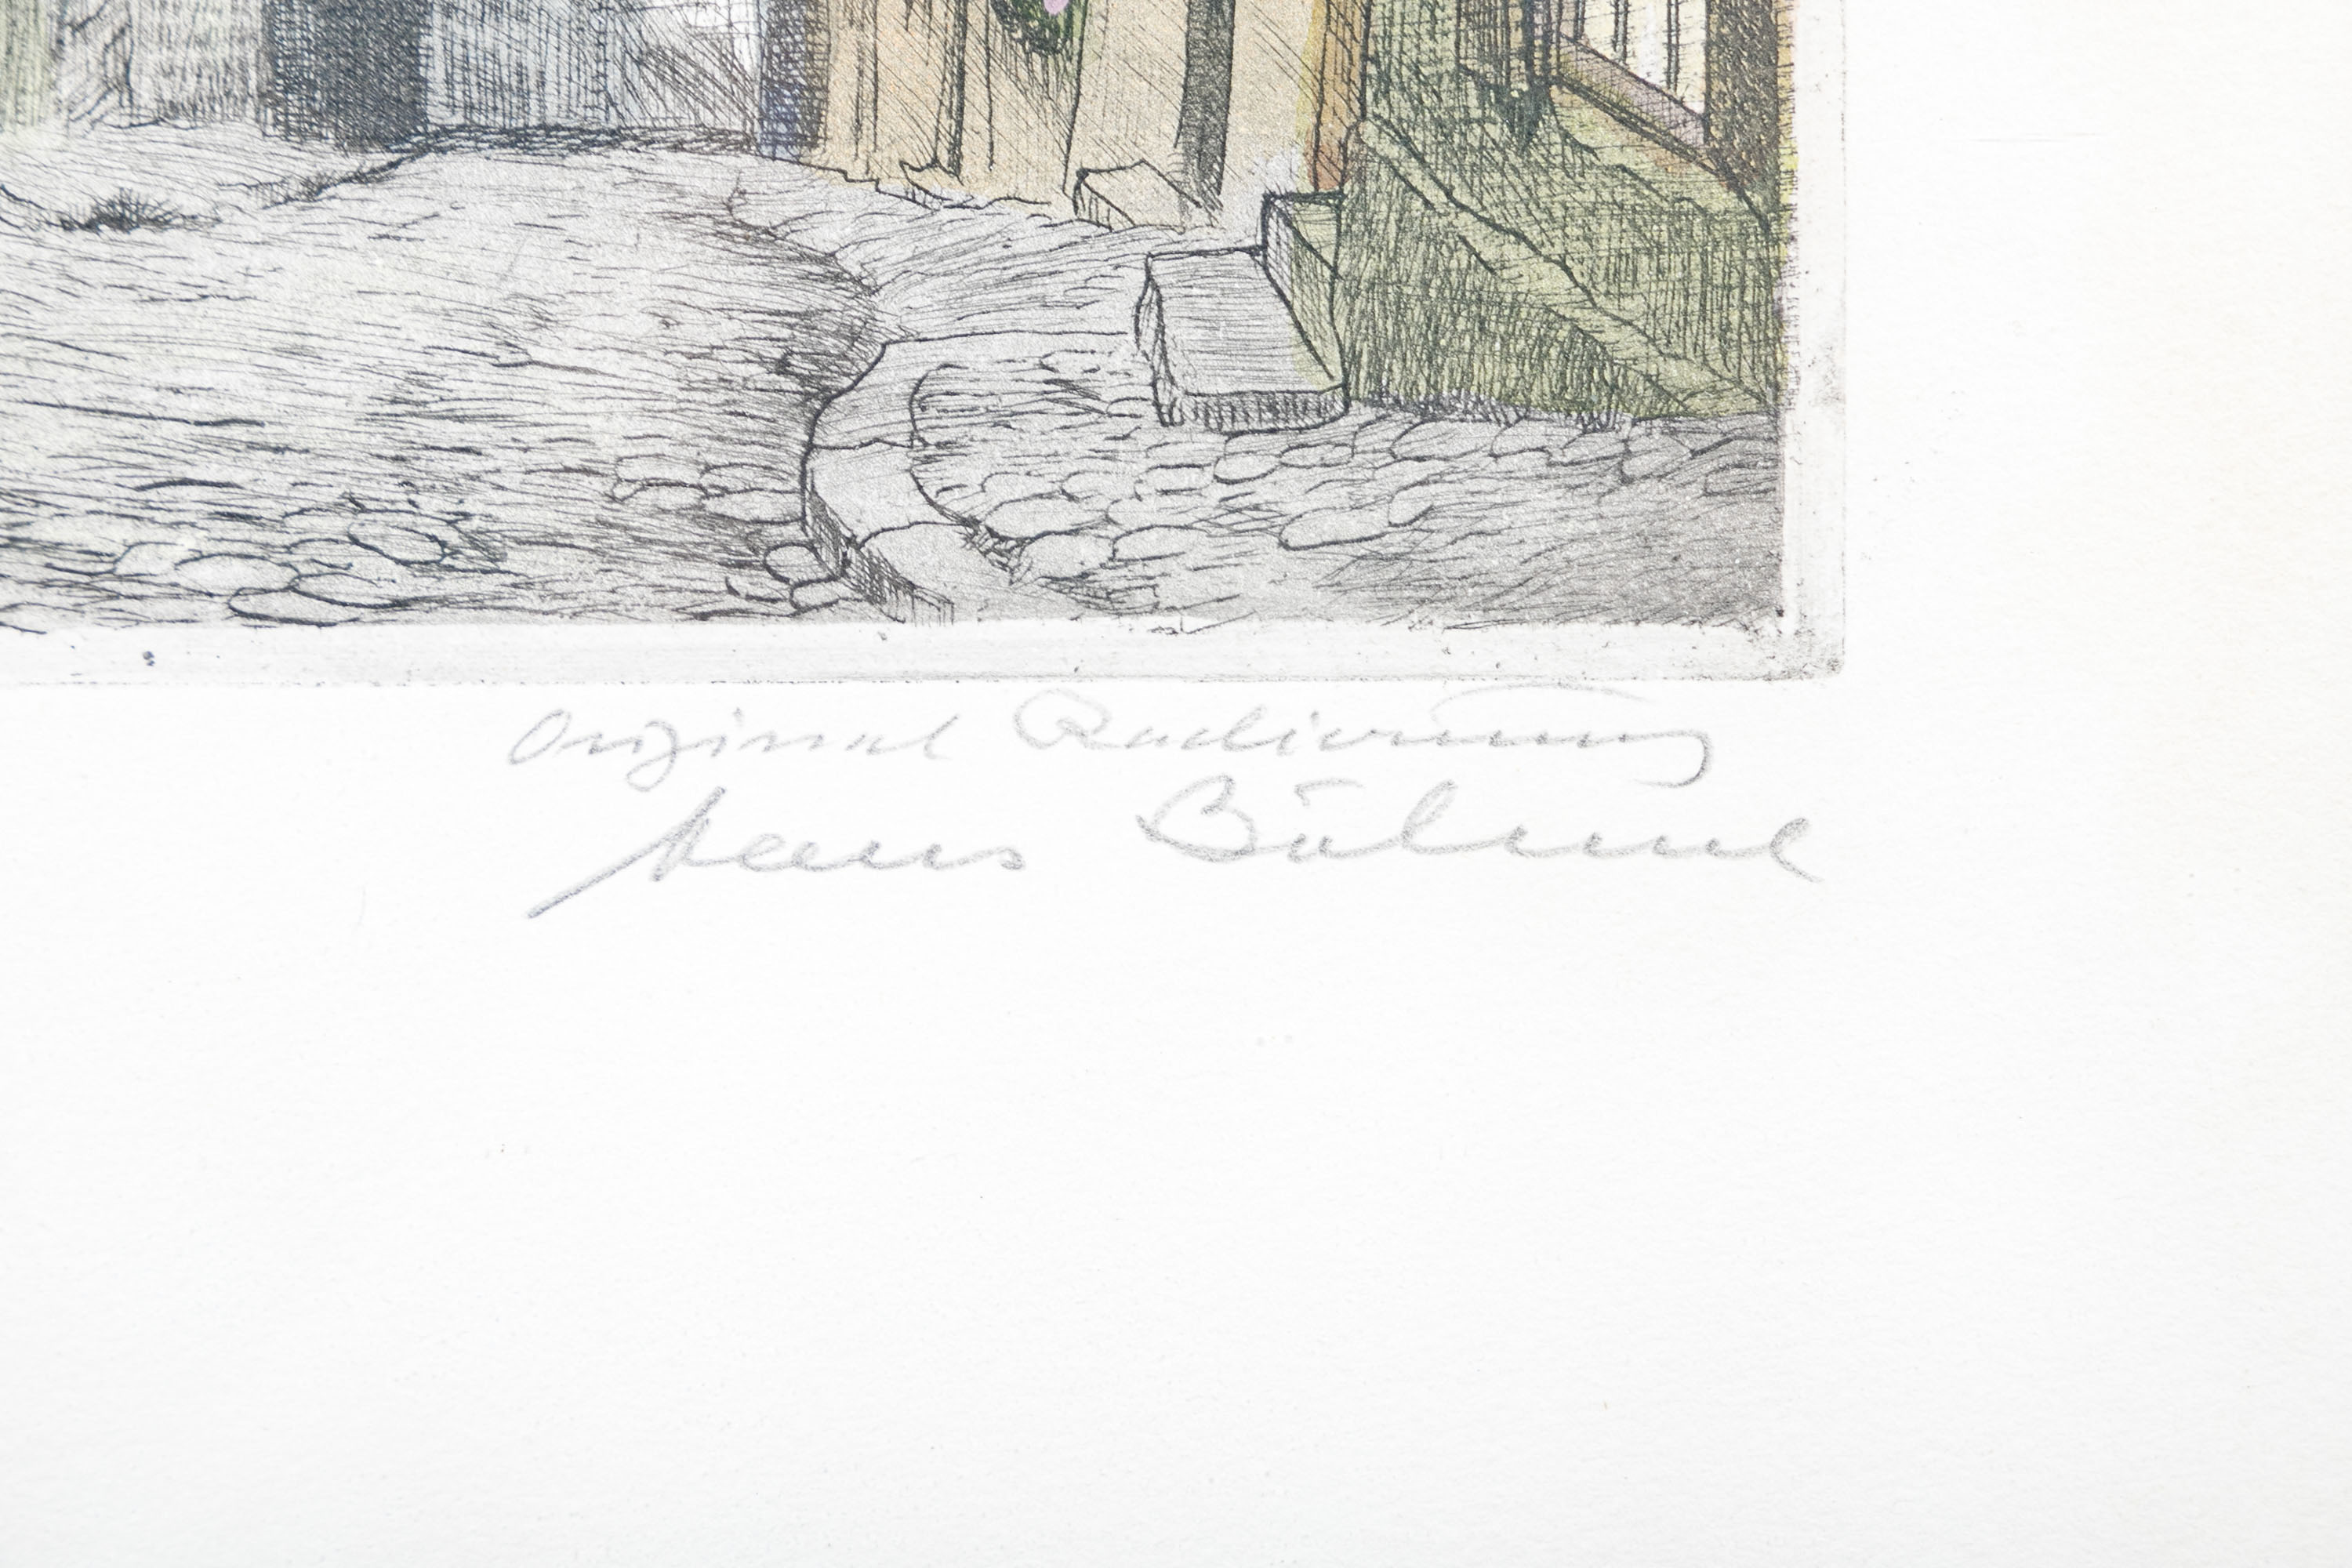 Original Radierung
Hans Bühme